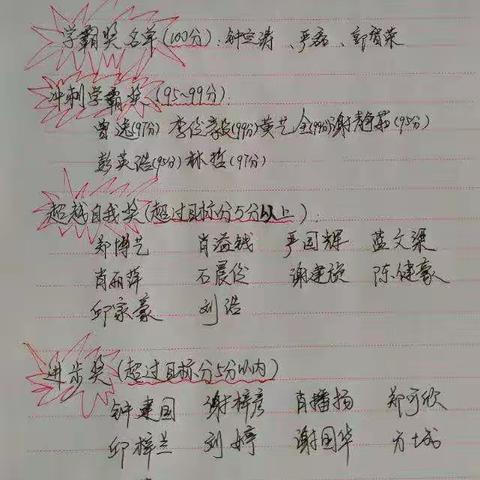 学霸奖名单(100分):钟立涛、严磊、郭贺荣
冲刺学霸奖(95~99分):
曾逸(97分) 李俊豪(99分) 黄艺全(99分) 谢静茹(95分)
彭英浩(95分) 林哲(97分)
超越自我奖(超过目标分5分以上):
郑博艺 肖溢钱 严国辉 蓝文梁
肖丽萍 石晨俊 谢建旋 陈健豪
邱家豪 刘浩
进步奖(超过目标分5分以内)
钟建国 谢梓彦 肖播扬 郑可欣
邱梓兰 刘婷 谢国华 方